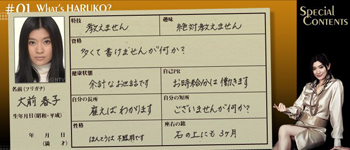 #01 WHAT'S HARUKO?
SPECIAL CONTENTS
特技
教えません
趣味
絶対教えません
資格
多くて書けませんが何か?
健康状態
余計なお世話です
自己PR
お時給分は働きます
自分の長所
雇えばわかります
自分の短所
ございませんが何か?
ほんとうは
座右の銘
石の上にも3ヶ月
名前(フリガナ)
大前 春子
生年月日(昭和・平成)
年 月 日
(満 才)